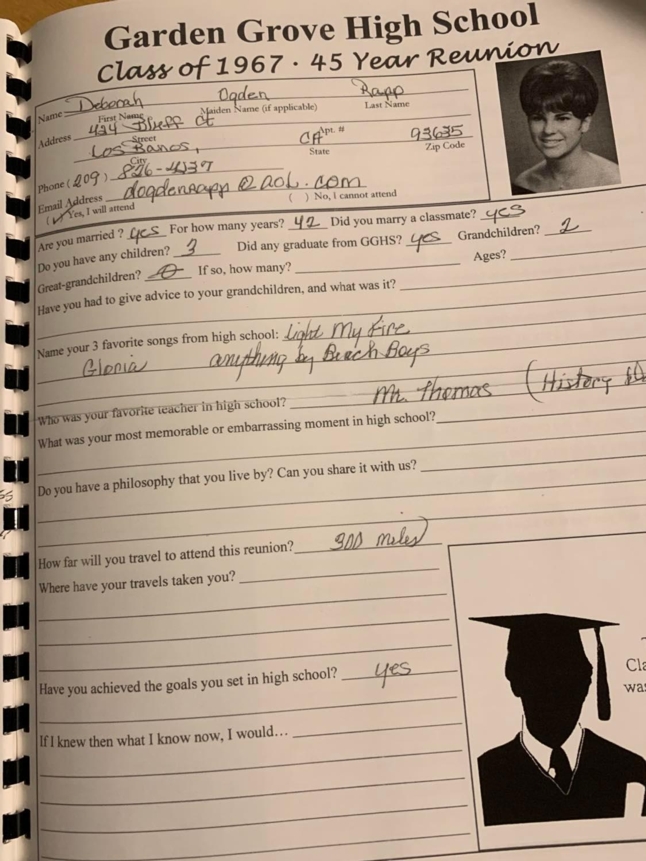 Garden Grove High School
Class of 1967 · 45 Year Reunion
Name Deborah Ogden Rapp
First Name Maiden Name (if applicable) Last Name
Address 434 Bluff Ct
Street Apt. #
Los Banos, CA 93635
City State Zip Code
Phone (209) 826-4037
Email Address dogdenrapp@aol.com
(✓) Yes, I will attend ( ) No, I cannot attend
Are you married? yes For how many years? 42 Did you marry a classmate? yes
Do you have any children? 3 Did any graduate from GGHS? yes Grandchildren? 2
Great-grandchildren? 0 If so, how many? Ages?
Have you had to give advice to your grandchildren, and what was it?
Name your 3 favorite songs from high school: Light My Fire
Gloria anything by Beach Boys
Who was your favorite teacher in high school? Mr. Thomas (History
What was your most memorable or embarrassing moment in high school?
Do you have a philosophy that you live by? Can you share it with us?
How far will you travel to attend this reunion? 300 miles
Where have your travels taken you?
Have you achieved the goals you set in high school? yes
Cla
was
If I knew then what I know now, I would...